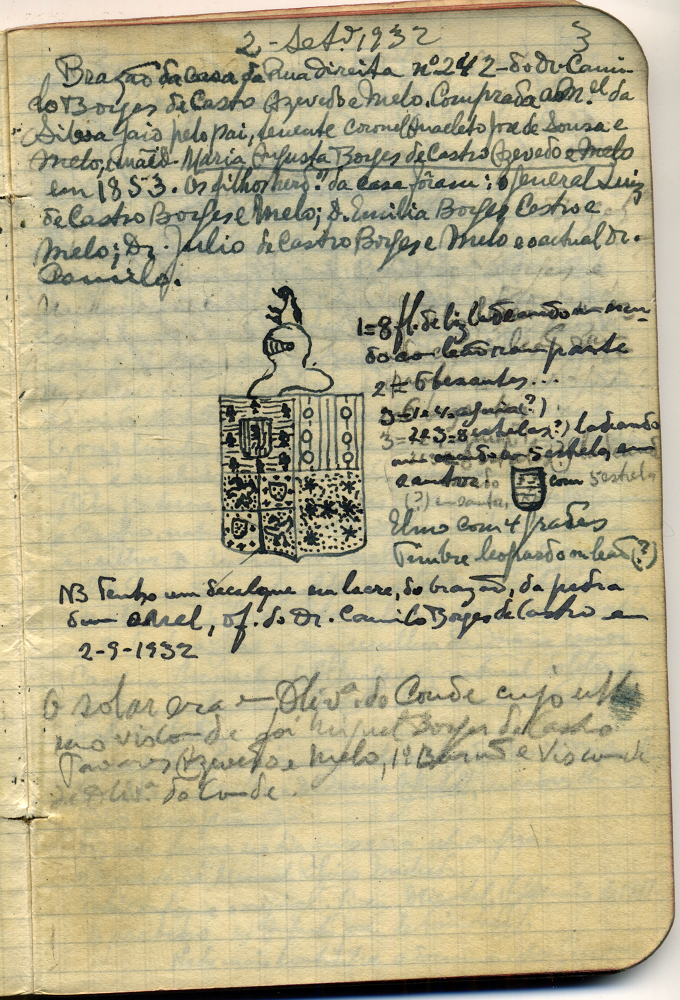 2-Set.º 1932
3
Brazão da casa da Rua direita nº 242 - do Dr. Cami-
lo Borges de Castro Azevedo e Melo. Comprada a M.el da
Silva Gaio pelo pai, tenente coronel Anacleto José de Sousa e
Melo, e mãe D. Maria Augusta Borges de Castro Azevedo e Melo
em 1853. Os filhos da casa fôram: o general Luiz
de Castro Borges e Melo; D. Emilia Borges Castro e
Melo; Dr. Julio de Castro Borges e Melo e o actual Dr.
Camilo.
1=8 fl. de liz ladeando um escu-
do com leão rampante
2 = 6 besantes...
3=1 e 4 = aguia (?)
3= 2 e 3=8 estrelas (?) ladeando
um escudo com 5 estrelas em
santor
com 5 estrelas
(?) em santor
Elmo com 4 grades
Timbre leopardo ou leão (?)
NB Tenho um decalque em lacre, do brazão, da pedra
dum anel, of. do Dr. Camilo Borges de Castro em
2-9-1932
O solar era em Oliv.ª do Conde cujo
visconde foi Miguel Borges de Castro
Tavares Azevedo e Melo, 1º Barão e Visconde
de Oliv.ª do Conde.